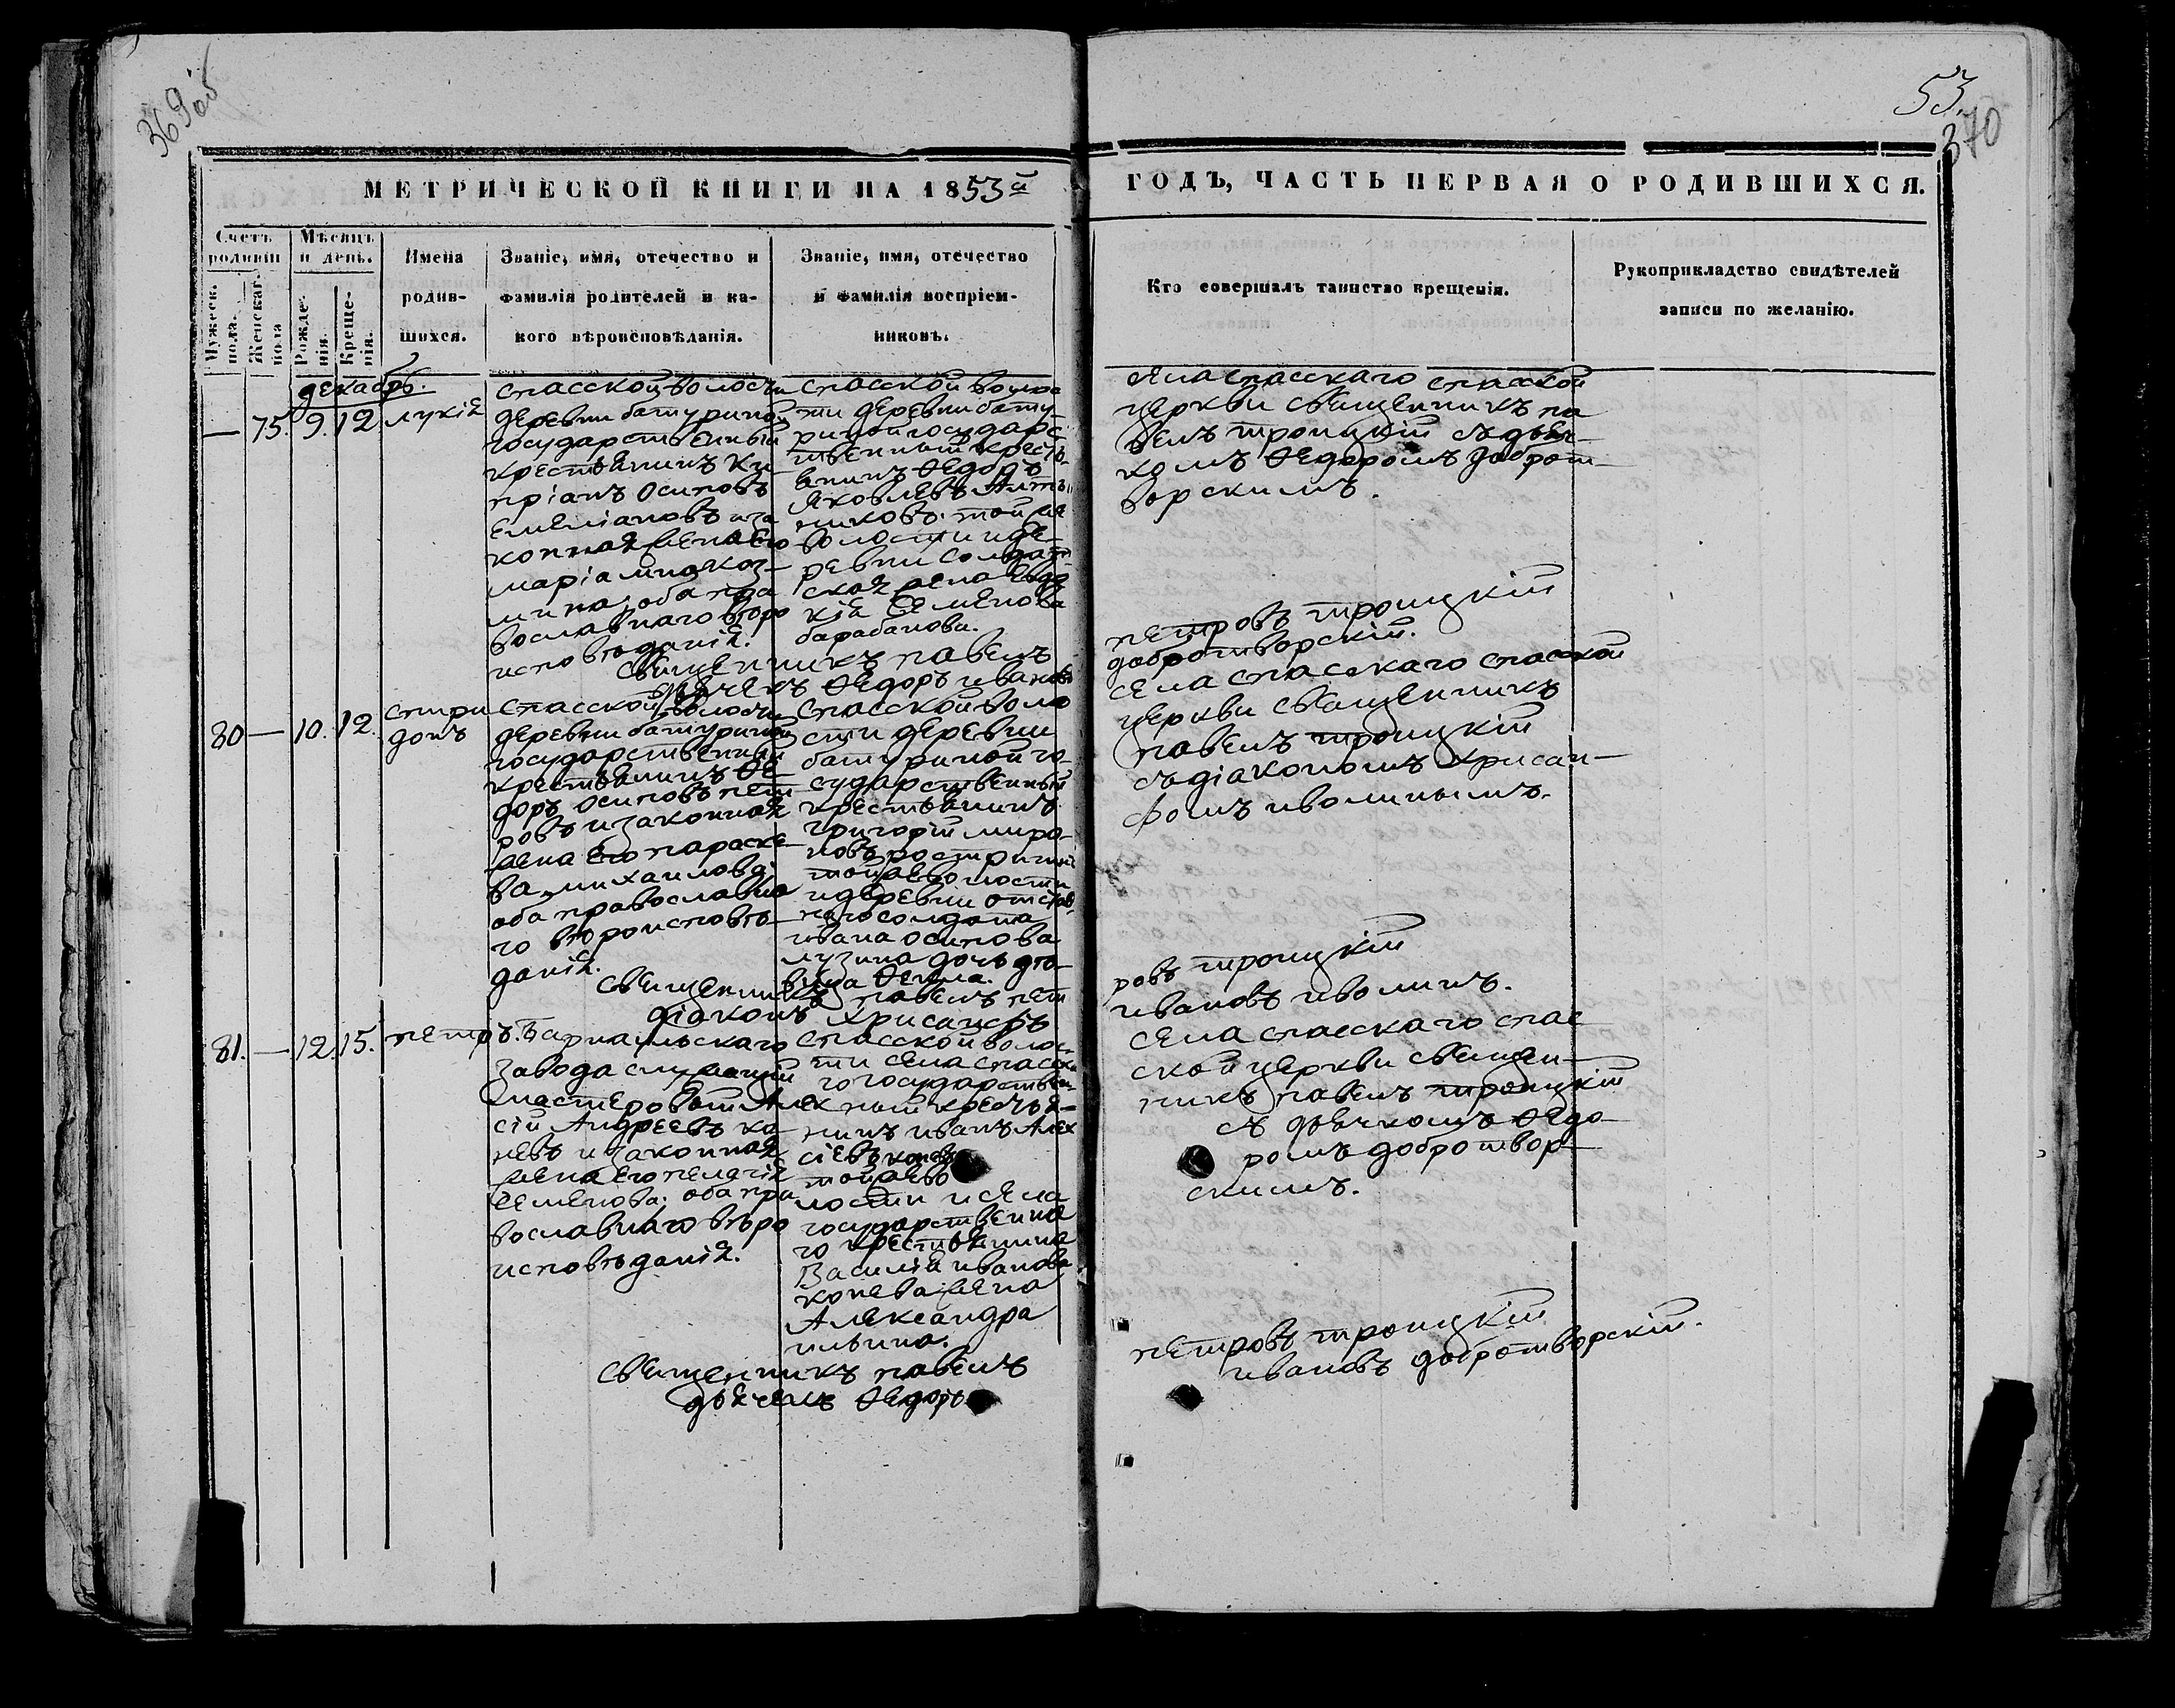 369об
53.
370
МЕТРИЧЕСКОЙ КНИГИ НА 1853й
ГОДЪ, ЧАСТЬ ПЕРВАЯ О РОДИВШИХСЯ.
Счетъ родивш
Мужеск. пола.
Женскаг. пола
Мѣсяцъ и день.
Рожде-
нія.
Креще-
нія.
Имена
родив-
шихся.
Званіе, имя, отечество и
фамилія родителей и ка-
кого вѣроисповѣданія.
Званіе, имя, отечество
и фамилія воспріем-
никовъ.
Кто совершалъ таинство крещенія.
Рукоприкладство свидѣтелей
записи по желанію.
декабрь.
— 75. 9. 12
лукія
спасской волости
деревни батуриной
государственный
крестьянинъ ки-
пріанъ осиповъ
емеліановъ и за
конная жена его
маріамна коз-
мина; оба пра
вославнаго вѣро
исповѣданія.
спасской воло
сти деревни бату-
риной государс
твенный кресть
янинъ ѳедоръ
яковлевъ
никовъ. той же
волости и де-
ревни солдат
ская жена евдо
кія семенова
барабанова.
села спасскаго спасской
церкви священникъ па
велъ троицкій съ дьяч-
комъ ѳедоромъ доброт-
ворскимъ.
священникъ павелъ петровъ троицкій
дьячекъ ѳедоръ ивановъ добротворскій.
80 — 10. 12.
спири
донъ
спасской волости
деревни батуриной
государственный
крестьянинъ ѳе-
доръ осиповъ пет
ровъ и законная
жена его параске
ва михаилова;
оба православна
го вѣроисповѣ-
данія.
спасской воло
сти деревни
батуриной го-
сударственный
крестьянинъ
григорій миро-
новъ
той же волости
и деревни отстав
наго солдата
ивана осипова
лузина дочь дѣ-
вица ѳекла.
села спасскаго спасской
церкви священникъ
павелъ троицкій
съ діакономъ хрисан-
фомъ иволинымъ.
священникъ павелъ пет ровъ троицкій
діаконъ хрисанфъ ивановъ иволинъ.
81. — 12. 15.
петръ.
Барнаульскаго
завода служащій
мастеровый Алек
сій Андреевъ ка-
невъ и законная
жена его пелагія
семенова; оба пра
вославнаго вѣро
исповѣданія.
спасской волос
ти села спасска
го государствен
ный крестья-
нинъ иванъ Алек
сіевъ коневъ
той же во
лости и села
государственна
го крестьянина
Василія иванова
конева жена
Александра
ильина.
села спасскаго спас
ской церкви священ-
никъ павелъ троицкій
съ дьячкомъ ѳедо-
ромъ добротвор-
скимъ.
священникъ павелъ петровъ троицкій
дьячекъ ѳедоръ ивановъ добротворскій.